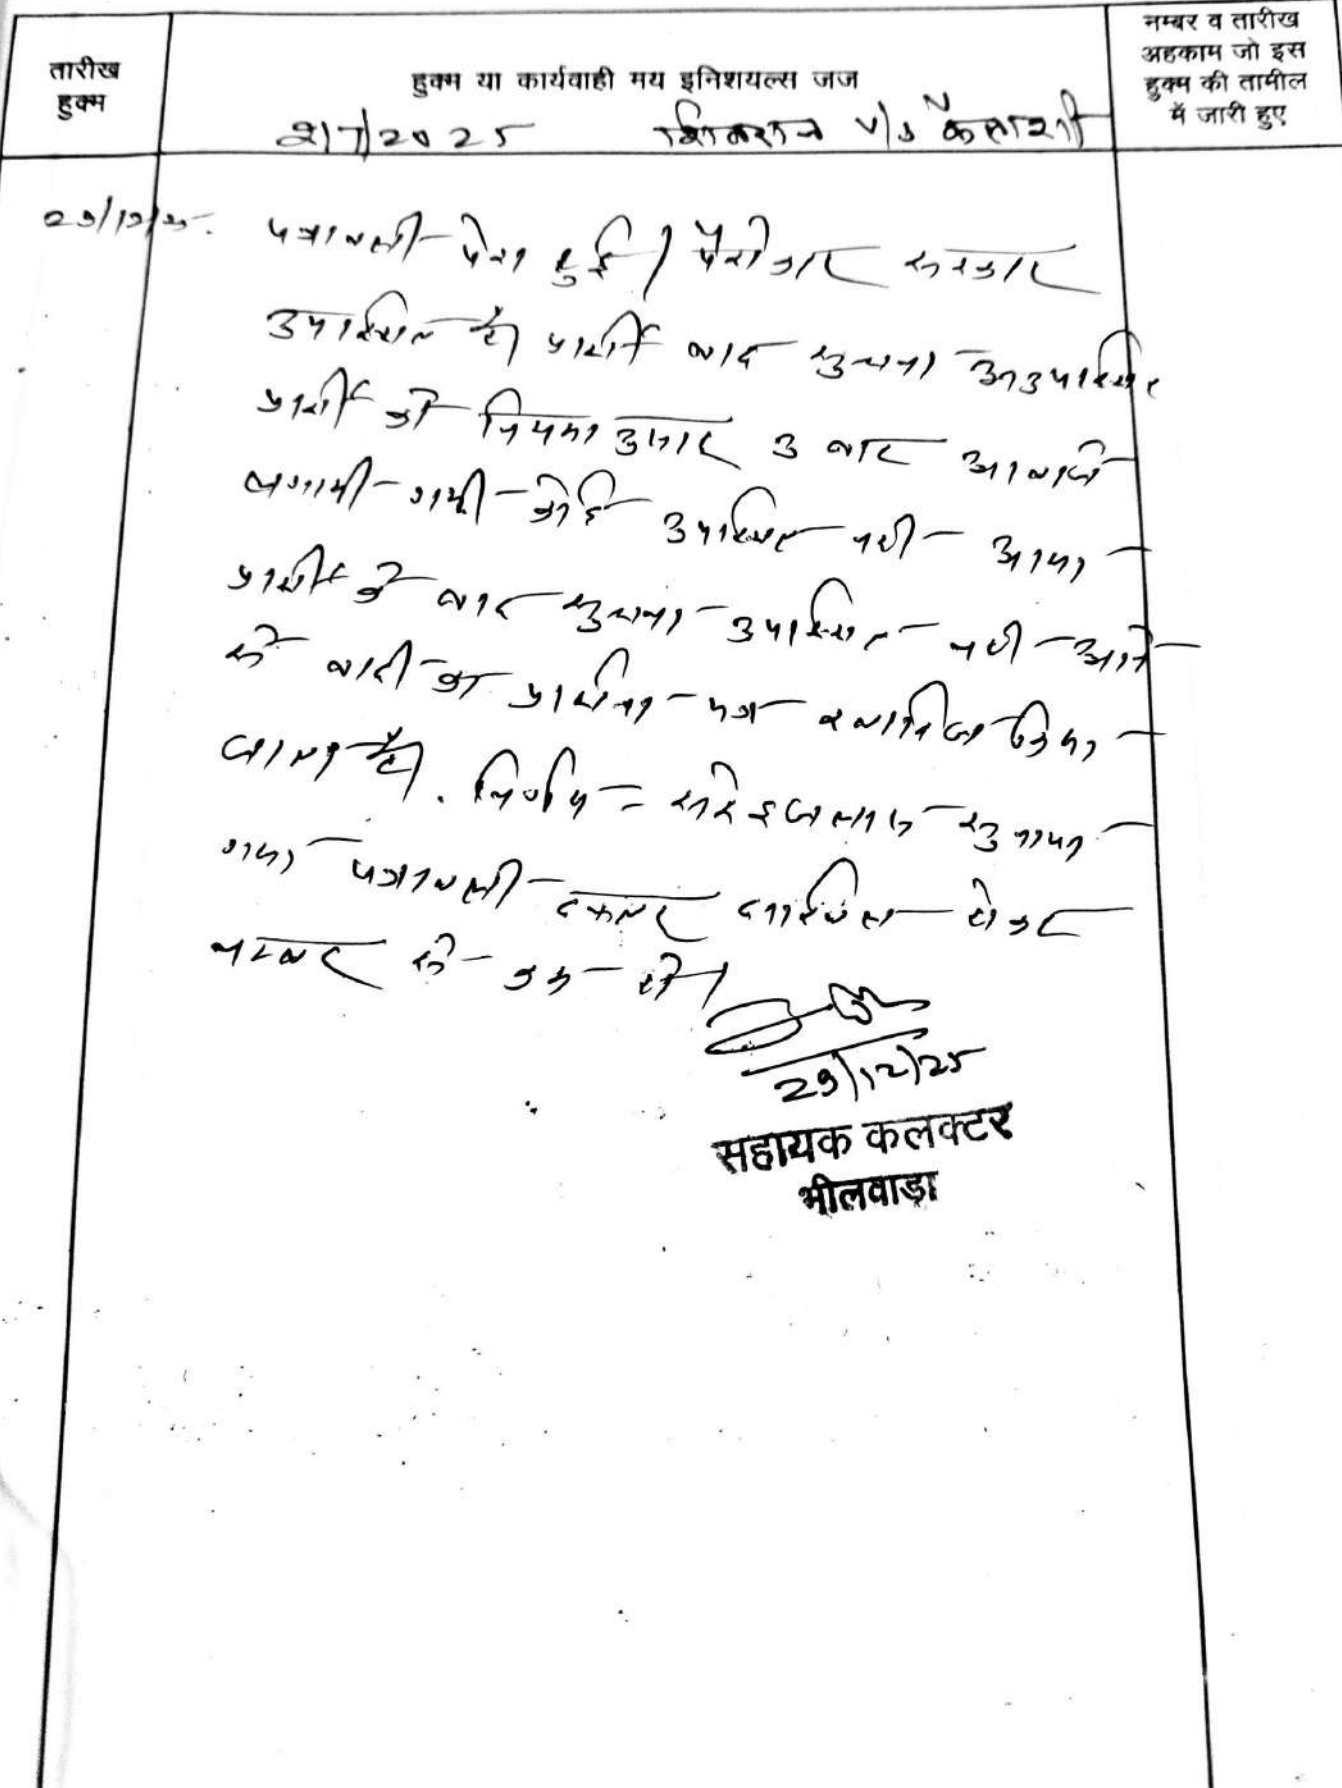 तारीख
हुक्म
हुक्म या कार्यवाही मय इनिशयल्स जज
नम्बर व तारीख
अहकाम जो इस
हुक्म की तामील
में जारी हुए
2025 शिवराज v/s कैलाशी
पत्रावली पेश हुई। पैरोकार सरकार
उपस्थित है। प्रार्थी बाद सुचना अनुउपस्थित
प्रार्थी को नियमानुसार 3 बार आवाजे
लगायी गयी कोई उपस्थित नही आया
प्रार्थी के बाद सुचना उपस्थित नही आने
से वादी का प्रार्थना पत्र खारिज किया
जाता है। निर्णय सरे इजलास सुनाया
गया पत्रावली दफ्तर दाखिल होकर
नम्बर से कम हो।
29/12/25
सहायक कलक्टर
भीलवाड़ा